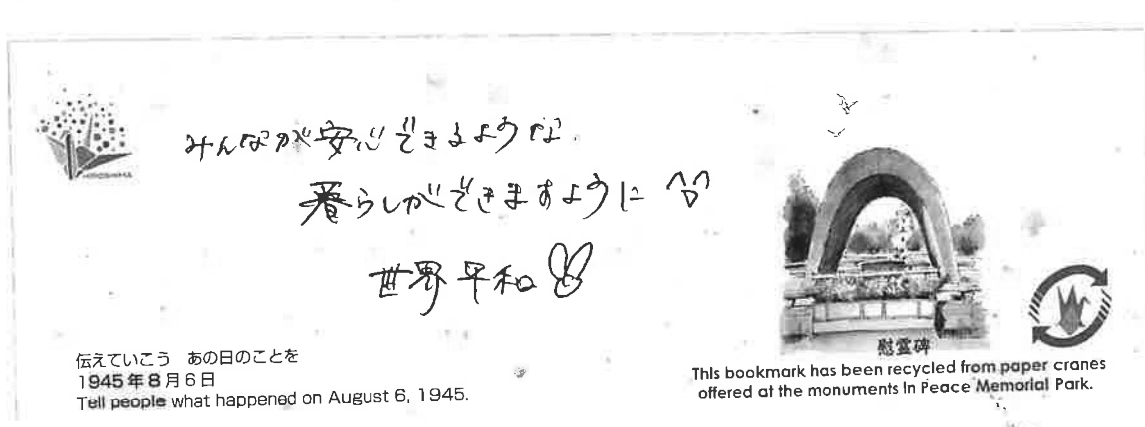 HIROSHIMA
みんなが安心できるような
暮らしができますように
世界平和
慰霊碑
伝えていこう あの日のことを
1945年8月6日
Tell people what happened on August 6, 1945.
This bookmark has been recycled from paper cranes
offered at the monuments in Peace Memorial Park.